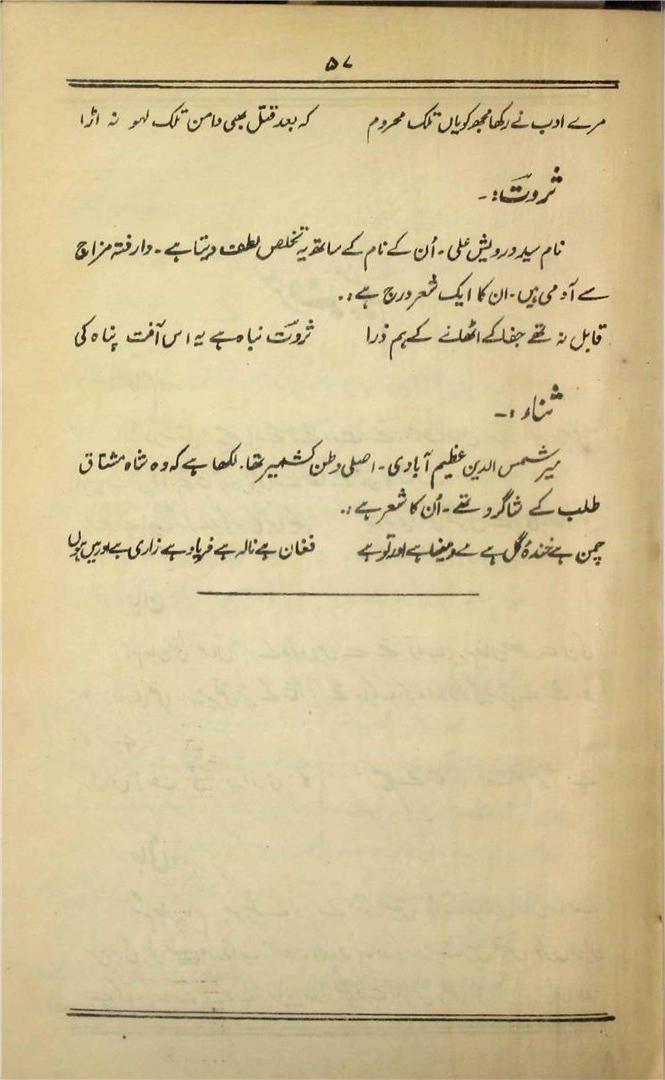 ۵۷
مرے ادب نے رکھا مجھ کو یاں تلک محروم کہ بعد قتل بھی دامن تلک لہو نہ اڑا
ثروت:۔
نام سید درویش علی۔ اُن کے نام کے ساتھ یہ تخلص لطف دیتا ہے۔ وارفتہ مزاج
سے آدمی ہیں۔ ان کا ایک شعر درج ہے:.
قابل نہ تھے جفا کے اٹھانے کے ہم ذرا ثروت نباہ ہے یہ اس آفت پناہ کی
ثناء:۔
میر شمس الدین عظیم آبادی۔ اصلی وطن کشمیر تھا۔ لکھا ہے کہ وہ شاہ مشتاق
طلب کے شاگرد تھے۔ اُن کا شعر ہے:.
چمن ہے خندۂ گل ہے مے و مینا ہے اور تو ہے فغان ہے نالہ ہے فریاد ہے زاری ہے اور میں ہوں